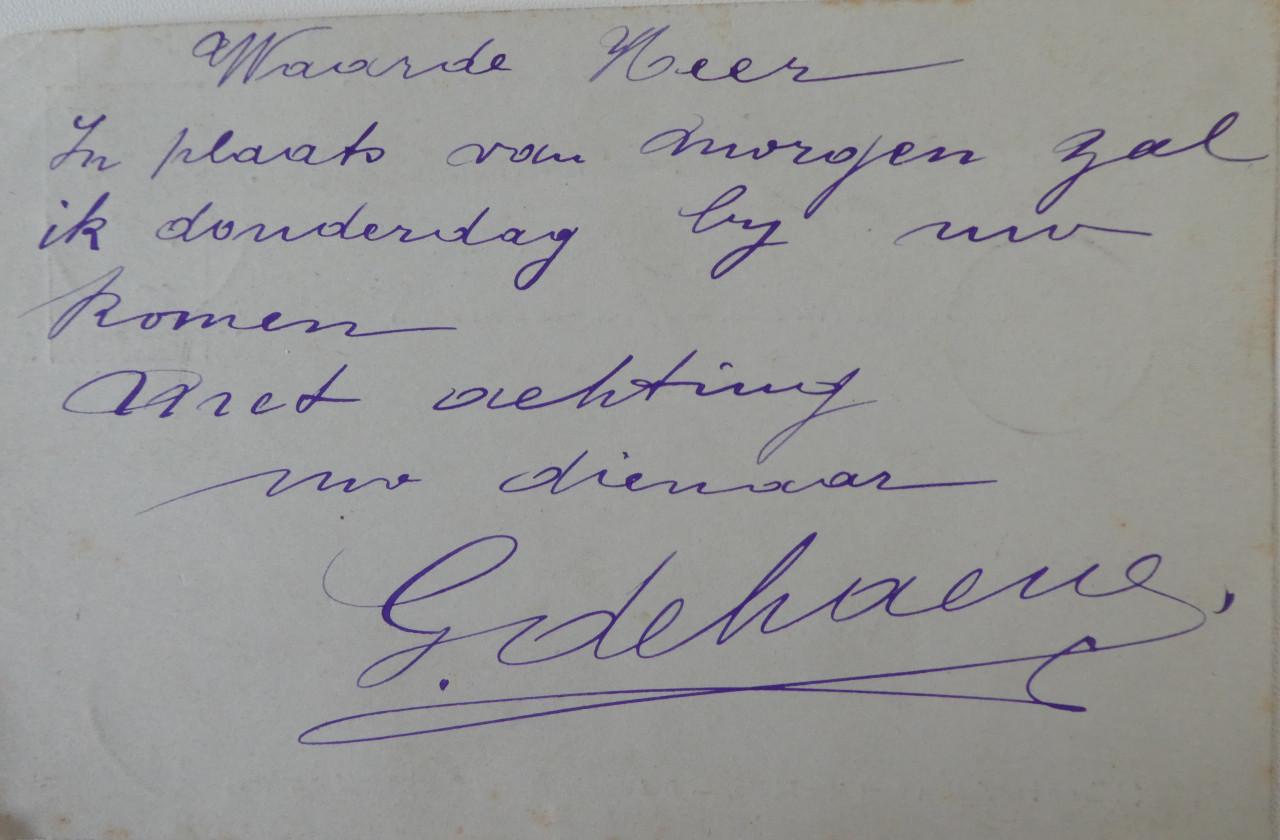 Waarde Heer
In plaats van morgen zal
ik donderdag by uw
komen
Met achting
uw dienaar
G. dehaene